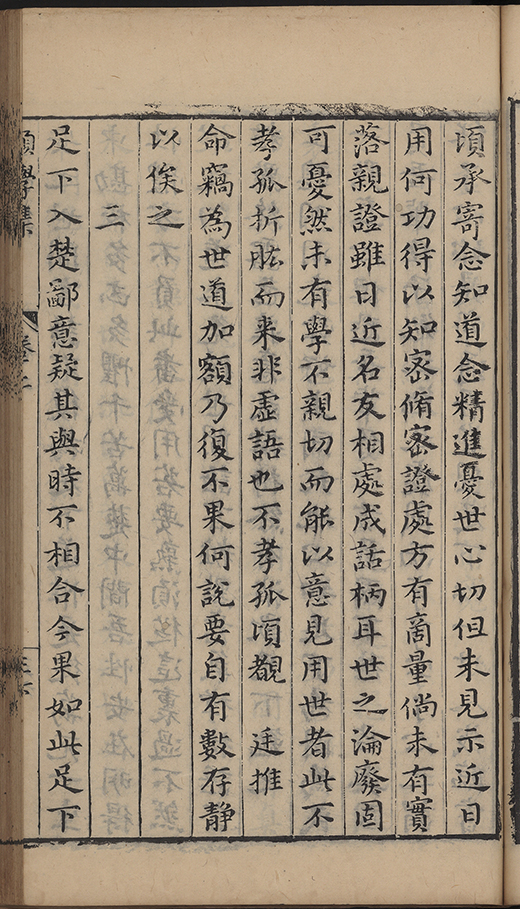 頃承寄念知道念精進憂世心切但未見示近日
用何功得以知宻脩宻證處方有商量倘未有實
落親證雖日近名友相處成話柄耳世之淪廢固
可憂然未有學不親切而能以意見用世者此不
孝孤折肱而来非虛語也不孝孤頃覩 廷推
命竊為世道加額乃復不果何說要自有數存静
以俟之
三
足下入楚鄙意疑其與時不相合今果如此足下
學集
卷二